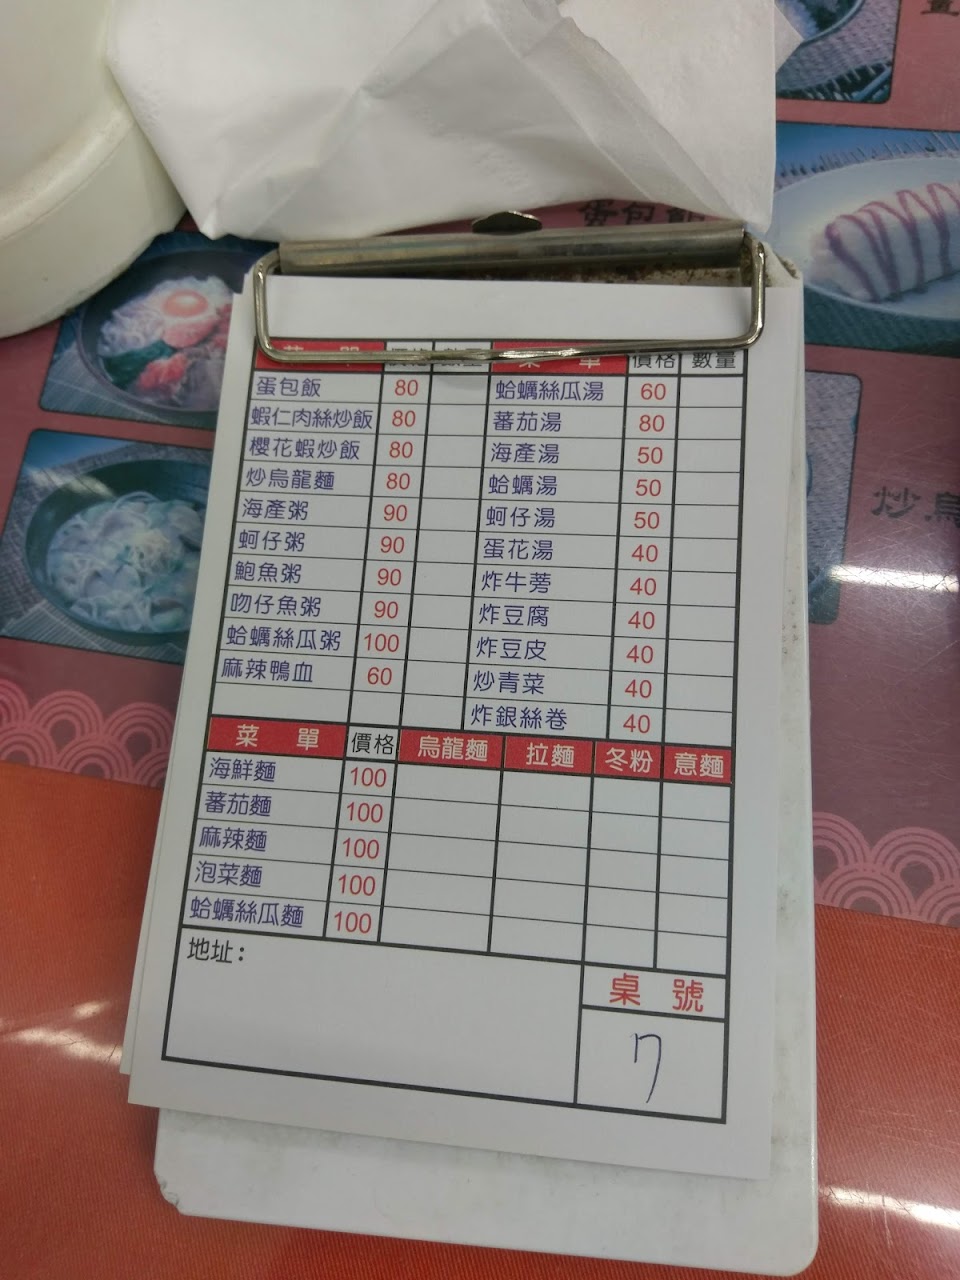 蛋包飯
菜 單 價格 數量 菜 單 價格 數量
蛋包飯 80 蛤蠣絲瓜湯 60
蝦仁肉絲炒飯 80 蕃茄湯 80
櫻花蝦炒飯 80 海產湯 50
炒烏龍麵 80 蛤蠣湯 50
海產粥 90 蚵仔湯 50
蚵仔粥 90 蛋花湯 40
鮑魚粥 90 炸牛蒡 40
吻仔魚粥 90 炸豆腐 40
蛤蠣絲瓜粥 100 炸豆皮 40
麻辣鴨血 60 炒青菜 40
炸銀絲卷 40
菜 單 價格 烏龍麵 拉麵 冬粉 意麵
海鮮麵 100
蕃茄麵 100
麻辣麵 100
泡菜麵 100
蛤蠣絲瓜麵 100
地址：
桌 號
7
炒烏